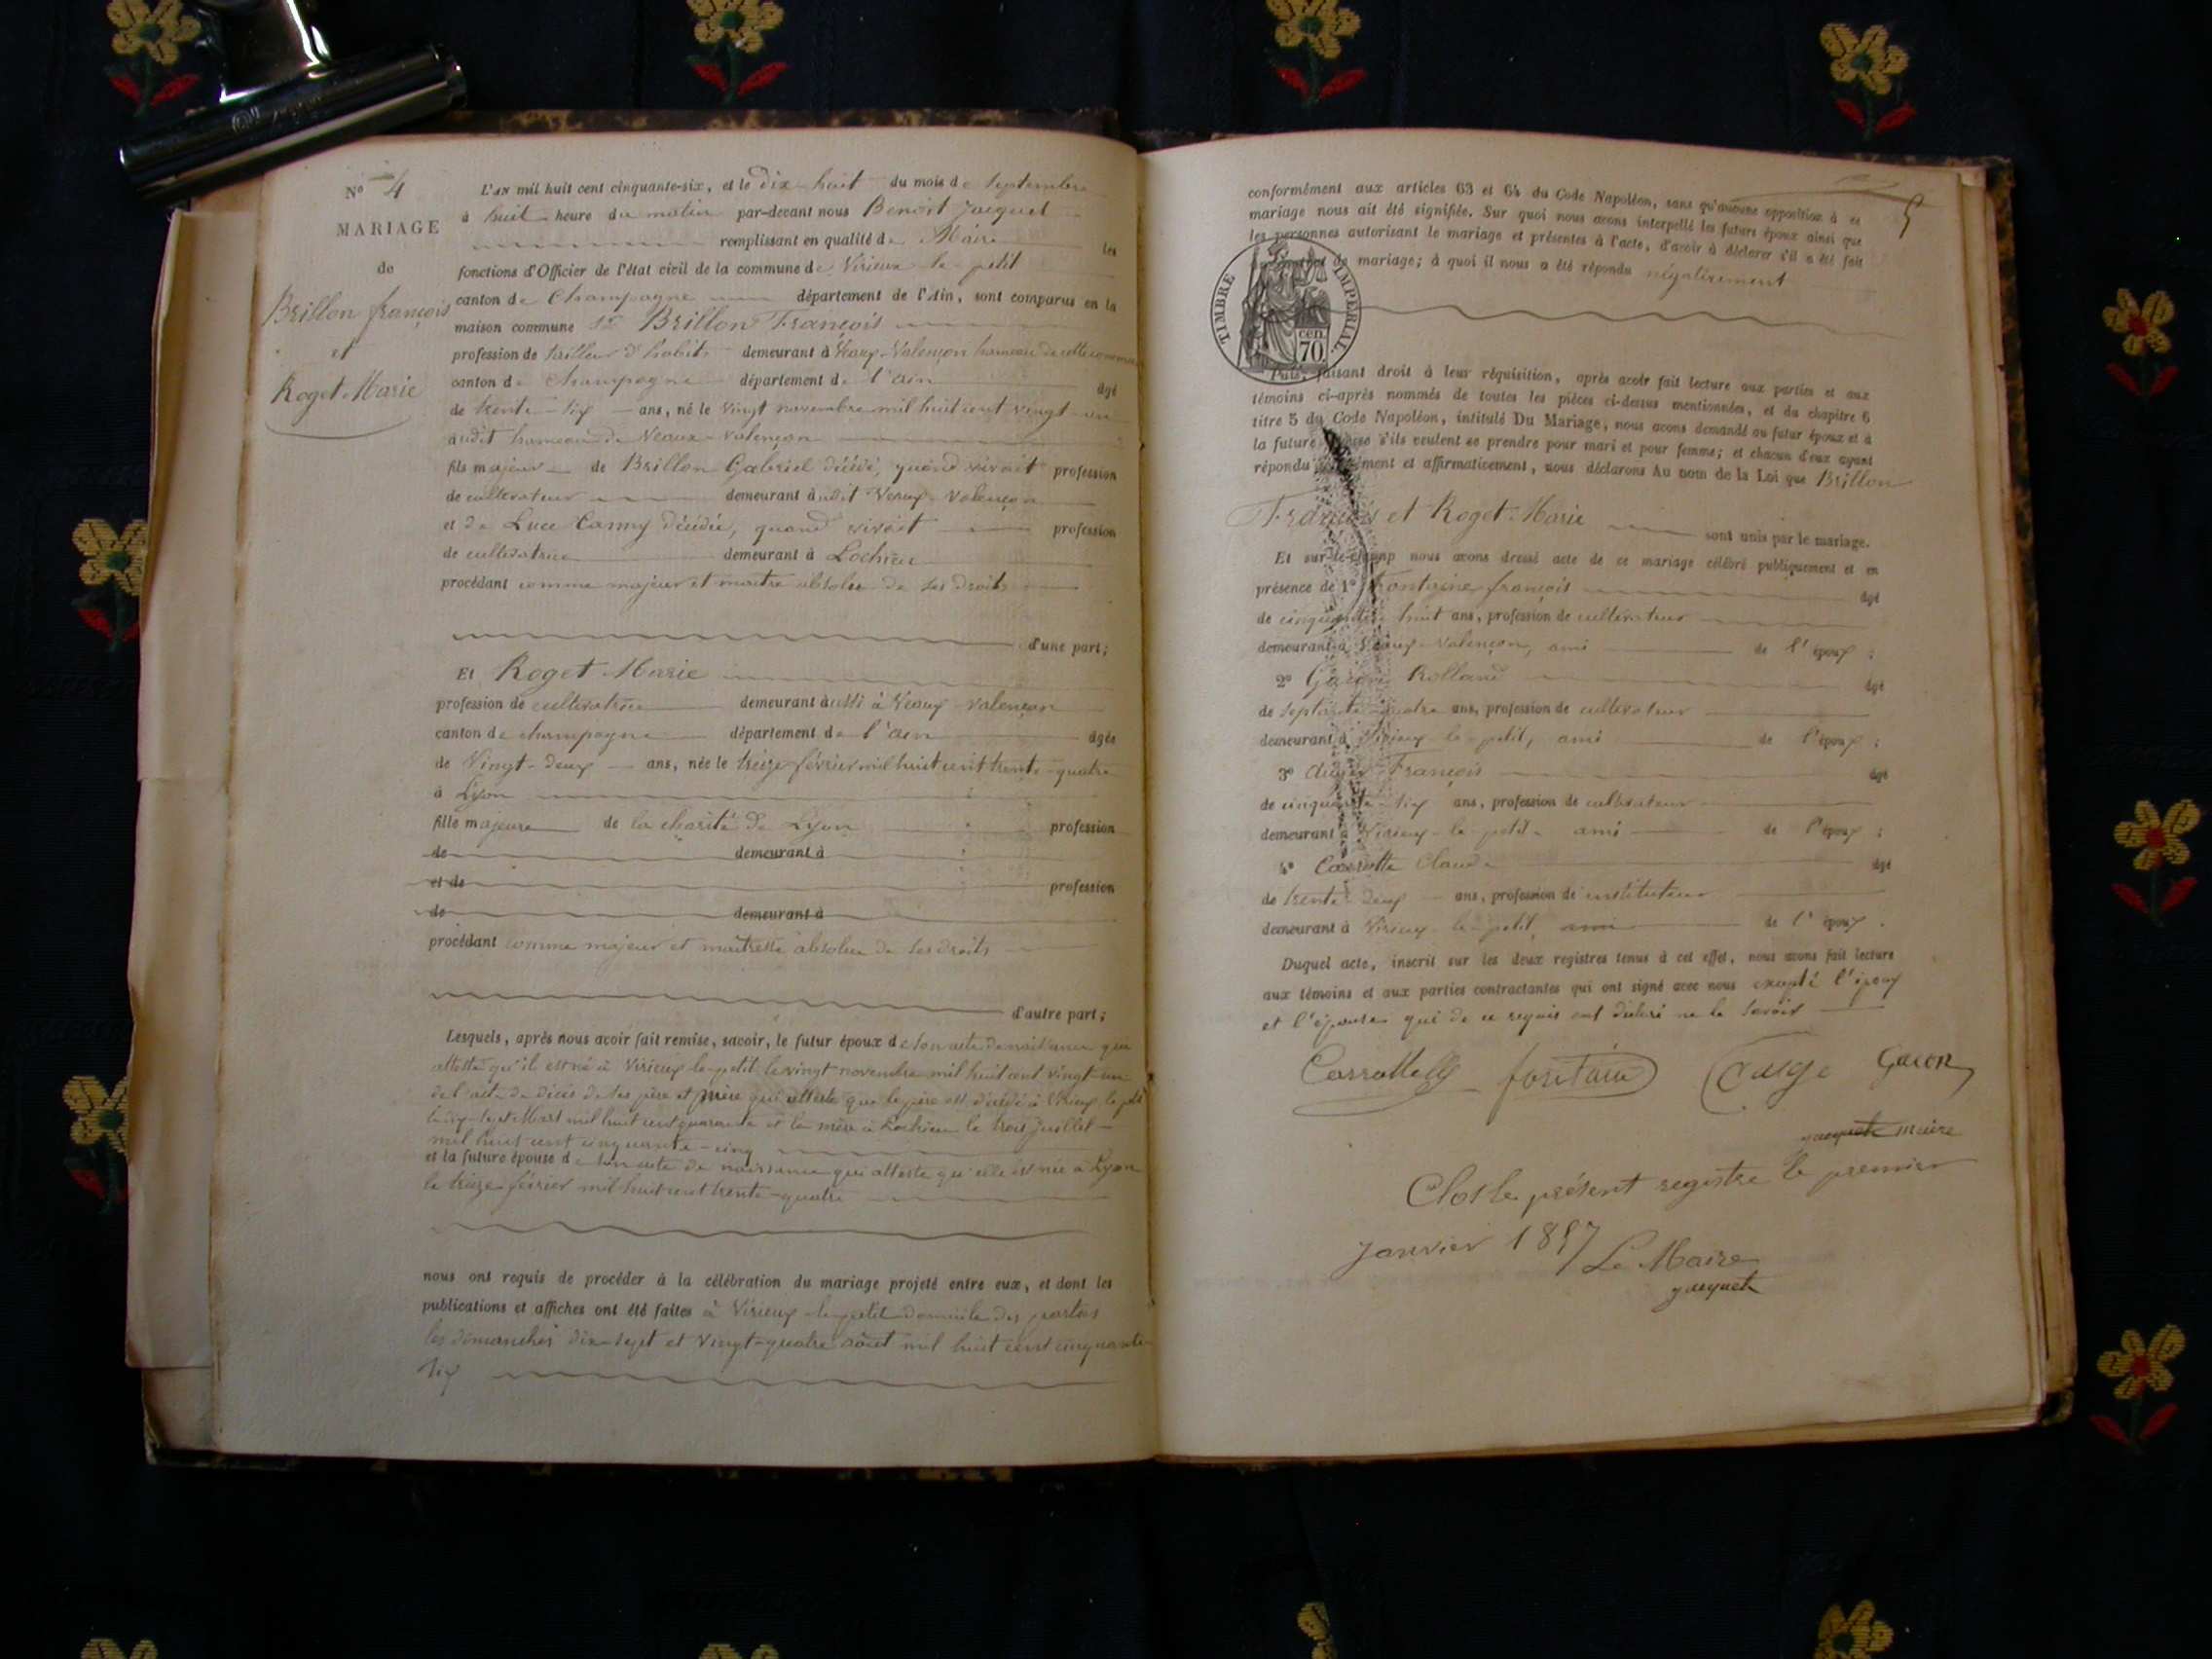 N° 4
MARIAGE
de
Brillon françois
et
Roget Marie
L'AN mil huit cent cinquante-six, et le dix-huit du mois de septembre
à huit heure du matin par-devant nous Benoit Jacquet
remplissant en qualité de Maire les
fonctions d'Officier de l'état civil de la commune de Virieux le petit
canton de Champagne département de l'Ain, sont comparus en la
maison commune Brillon François
profession de tailleur d'habits demeurant à Veaux-Valençon hameau de cette commune
canton de champagne département de l'ain âgé
de trente-six ans, né le vingt novembre mil huit cent vingt-un
audit hameau de Veaux-Valençon
fils majeur de Brillon Gabriel décédé, quand vivait profession
de cultivateur demeurant audit Veaux-Valençon
et de Luce Canny décédée, quand vivait profession
de cultivatrice demeurant à Lochieu
procédant comme majeur et maitre absolu de ses droits
d'une part;
Et Roget Marie
profession de cultivatrice demeurant aussi à Veaux-Valençon
canton de champagne département de l'ain âgée
de Vingt-deux ans, née le treize février mil huit cent trente-quatre
à Lyon
fille majeure de la charité de Lyon profession
de demeurant à
et de profession
de demeurant à
procédant comme majeur et maitresse absolue de ses droits
d'autre part;
Lesquels, après nous avoir fait remise, savoir, le futur époux de son acte de naissance qui
atteste qu'il est né à Virieux le petit le vingt novembre mil huit cent vingt-un
de l'acte de décès de ses père et mère qui atteste que le père est décédé à Virieux le petit
le dix-sept Mars mil huit cent quarante et la mère à Lochieu le trois Juillet
mil huit cent cinquante-cinq
et la future épouse de son acte de naissance qui atteste qu'elle est née à Lyon
le treize février mil huit cent trente-quatre
nous ont requis de procéder à la célébration du mariage projeté entre eux, et dont les
publications et affiches ont été faites à Virieux le petit domicile des parties
les dimanches dix-sept et vingt-quatre août mil huit cent cinquante
six
5
conformément aux articles 63 et 64 du Code Napoléon, sans qu'aucune opposition à ce
mariage nous ait été signifiée. Sur quoi nous avons interpellé les futurs époux ainsi que
les personnes autorisant le mariage et présentes à l'acte, d'avoir à déclarer s'il a été fait
contrat de mariage; à quoi il nous a été répondu négativement
TIMBRE IMPÉRIAL.
70 cen.
Puis, faisant droit à leur réquisition, après avoir fait lecture aux parties et aux
témoins ci-après nommés de toutes les pièces ci-dessus mentionnées, et du chapitre 6
titre 5 du Code Napoléon, intitulé Du Mariage, nous avons demandé au futur époux et à
la future épouse s'ils veulent se prendre pour mari et pour femme; et chacun d'eux ayant
répondu séparément et affirmativement, nous déclarons Au nom de la Loi que Brillon
François et Roget Marie sont unis par le mariage.
Et sur-le-champ nous avons dressé acte de ce mariage célébré publiquement et en
présence de 1° Fontaine françois âgé
de cinquante huit ans, profession de cultivateur
demeurant à Veaux-Valençon, ami de l'époux ;
2° Gacon Rolland âgé
de septante-quatre ans, profession de cultivateur
demeurant à Virieux-le-petit, ami de l'époux ;
3° François âgé
de cinquante-six ans, profession de cultivateur
demeurant à Virieux-le-petit ami de l'époux ;
4° Carrotte Claude âgé
de trente-deux ans, profession de instituteur
demeurant à Virieux-le-petit, ami de l'époux .
Duquel acte, inscrit sur les deux registres tenus à cet effet, nous avons fait lecture
aux témoins et aux parties contractantes qui ont signé avec nous excepté l'époux
et l'épouse qui de ce requis ont déclaré ne le savoir
fontaine Gacon
jacquet maire
Clos le présent registre le premier
Janvier 1857 Le Maire
jacquet